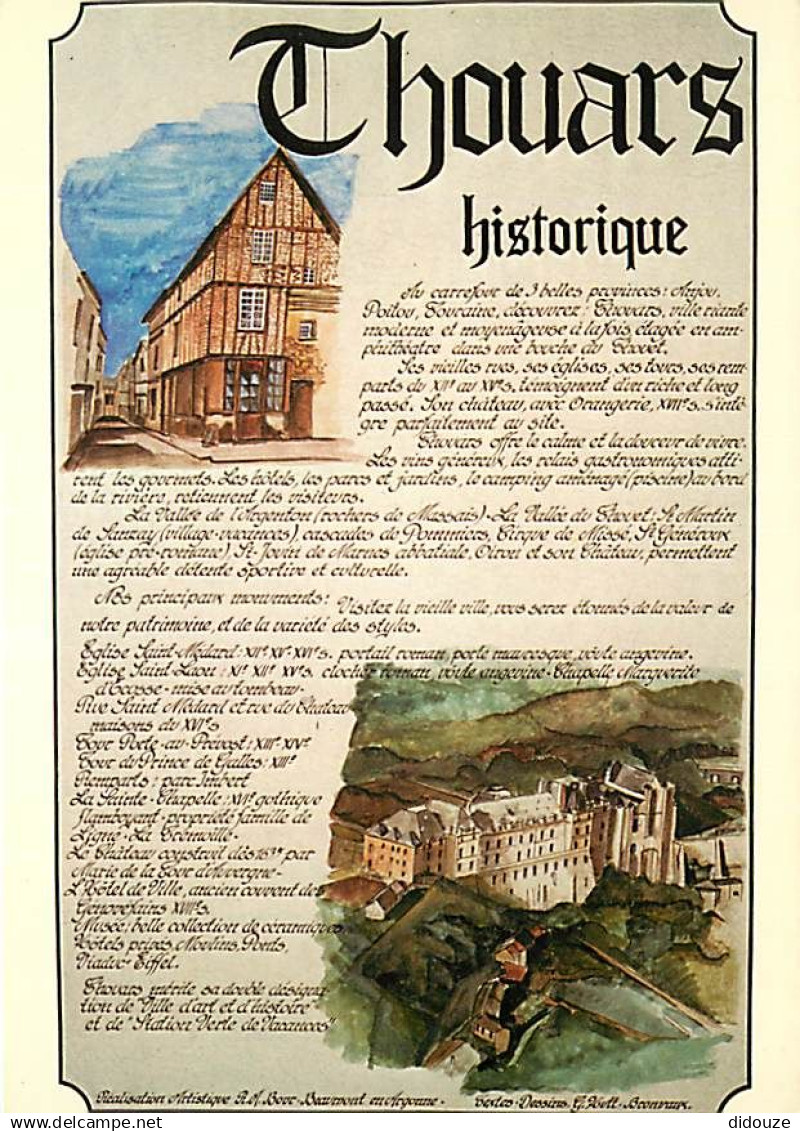 Thouars
historique
Au carrefour de 3 belles provinces: Anjou,
Poitou, Touraine, découvrez: Thouars, ville riante
moderne et moyenâgeuse à la fois, étagée en am-
phithéâtre dans une bouche du Thouet.
Ses vieilles rues, ses églises, ses tours, ses rem-
parts du XIIe au XVe s, témoignent d'un riche et long
passé. Son château, avec Orangerie, XVIIe s. s'intè-
gre parfaitement au site.
Thouars offre le calme et la douceur de vivre.
Les vins généreux, les relais gastronomiques atti-
rent les gourmets. Les hôtels, les parcs et jardins, le camping aménagé (piscine) au bord
de la rivière, retiennent les visiteurs.
La Vallée de l'Argenton (rochers de Massais) - La Vallée du Thouet: St Martin
de Sanzay (village-vacances), cascades de Pommiers, Cirque de Missé, St Généroux
(église pré-romane), St-Jouin de Marnes abbatiale, Oiron et son Château, permettent
une agréable détente sportive et culturelle.
Nos principaux monuments: Visitez la vieille ville, vous serez étonnés de la valeur de
notre patrimoine, et de la variété des styles.
Eglise Saint-Médard: XIIe XVe XVIe s. portail roman, porte mauresque, voûte angevine.
Eglise Saint-Laon: XIe XIIe XVe s. clocher roman, voûte angevine - Chapelle Marguerite
d'Ecosse - mise au tombeau -
Rue Saint Médard et rue du Château
maisons du XVIe s
Tour Porte-au-Prévost: XIIIe-XIVe
Tour du Prince de Galles: XIIe
Remparts: parc Imbert
La Sainte-Chapelle: XVIe gothique
flamboyant - propriété famille de
Ligne - La Trémoille -
Le Château construit dès 1635 par
Marie de la Tour d'Auvergne -
L'Hôtel de Ville, ancien couvent des
Genovéfains XVIIe s.
Musée: belle collection de céramiques
Hôtels privés, Moulins, Ponts,
Viaduc-Eiffel.
Thouars mérite sa double désigna-
tion de "Ville d'art et d'histoire"
et de "Station Verte de Vacances"
Réalisation Artistique R.M. Bour - Beaumont en Argonne -
Textes - Dessins G. - Bronvaux.
© didouze
www.delcampe.net